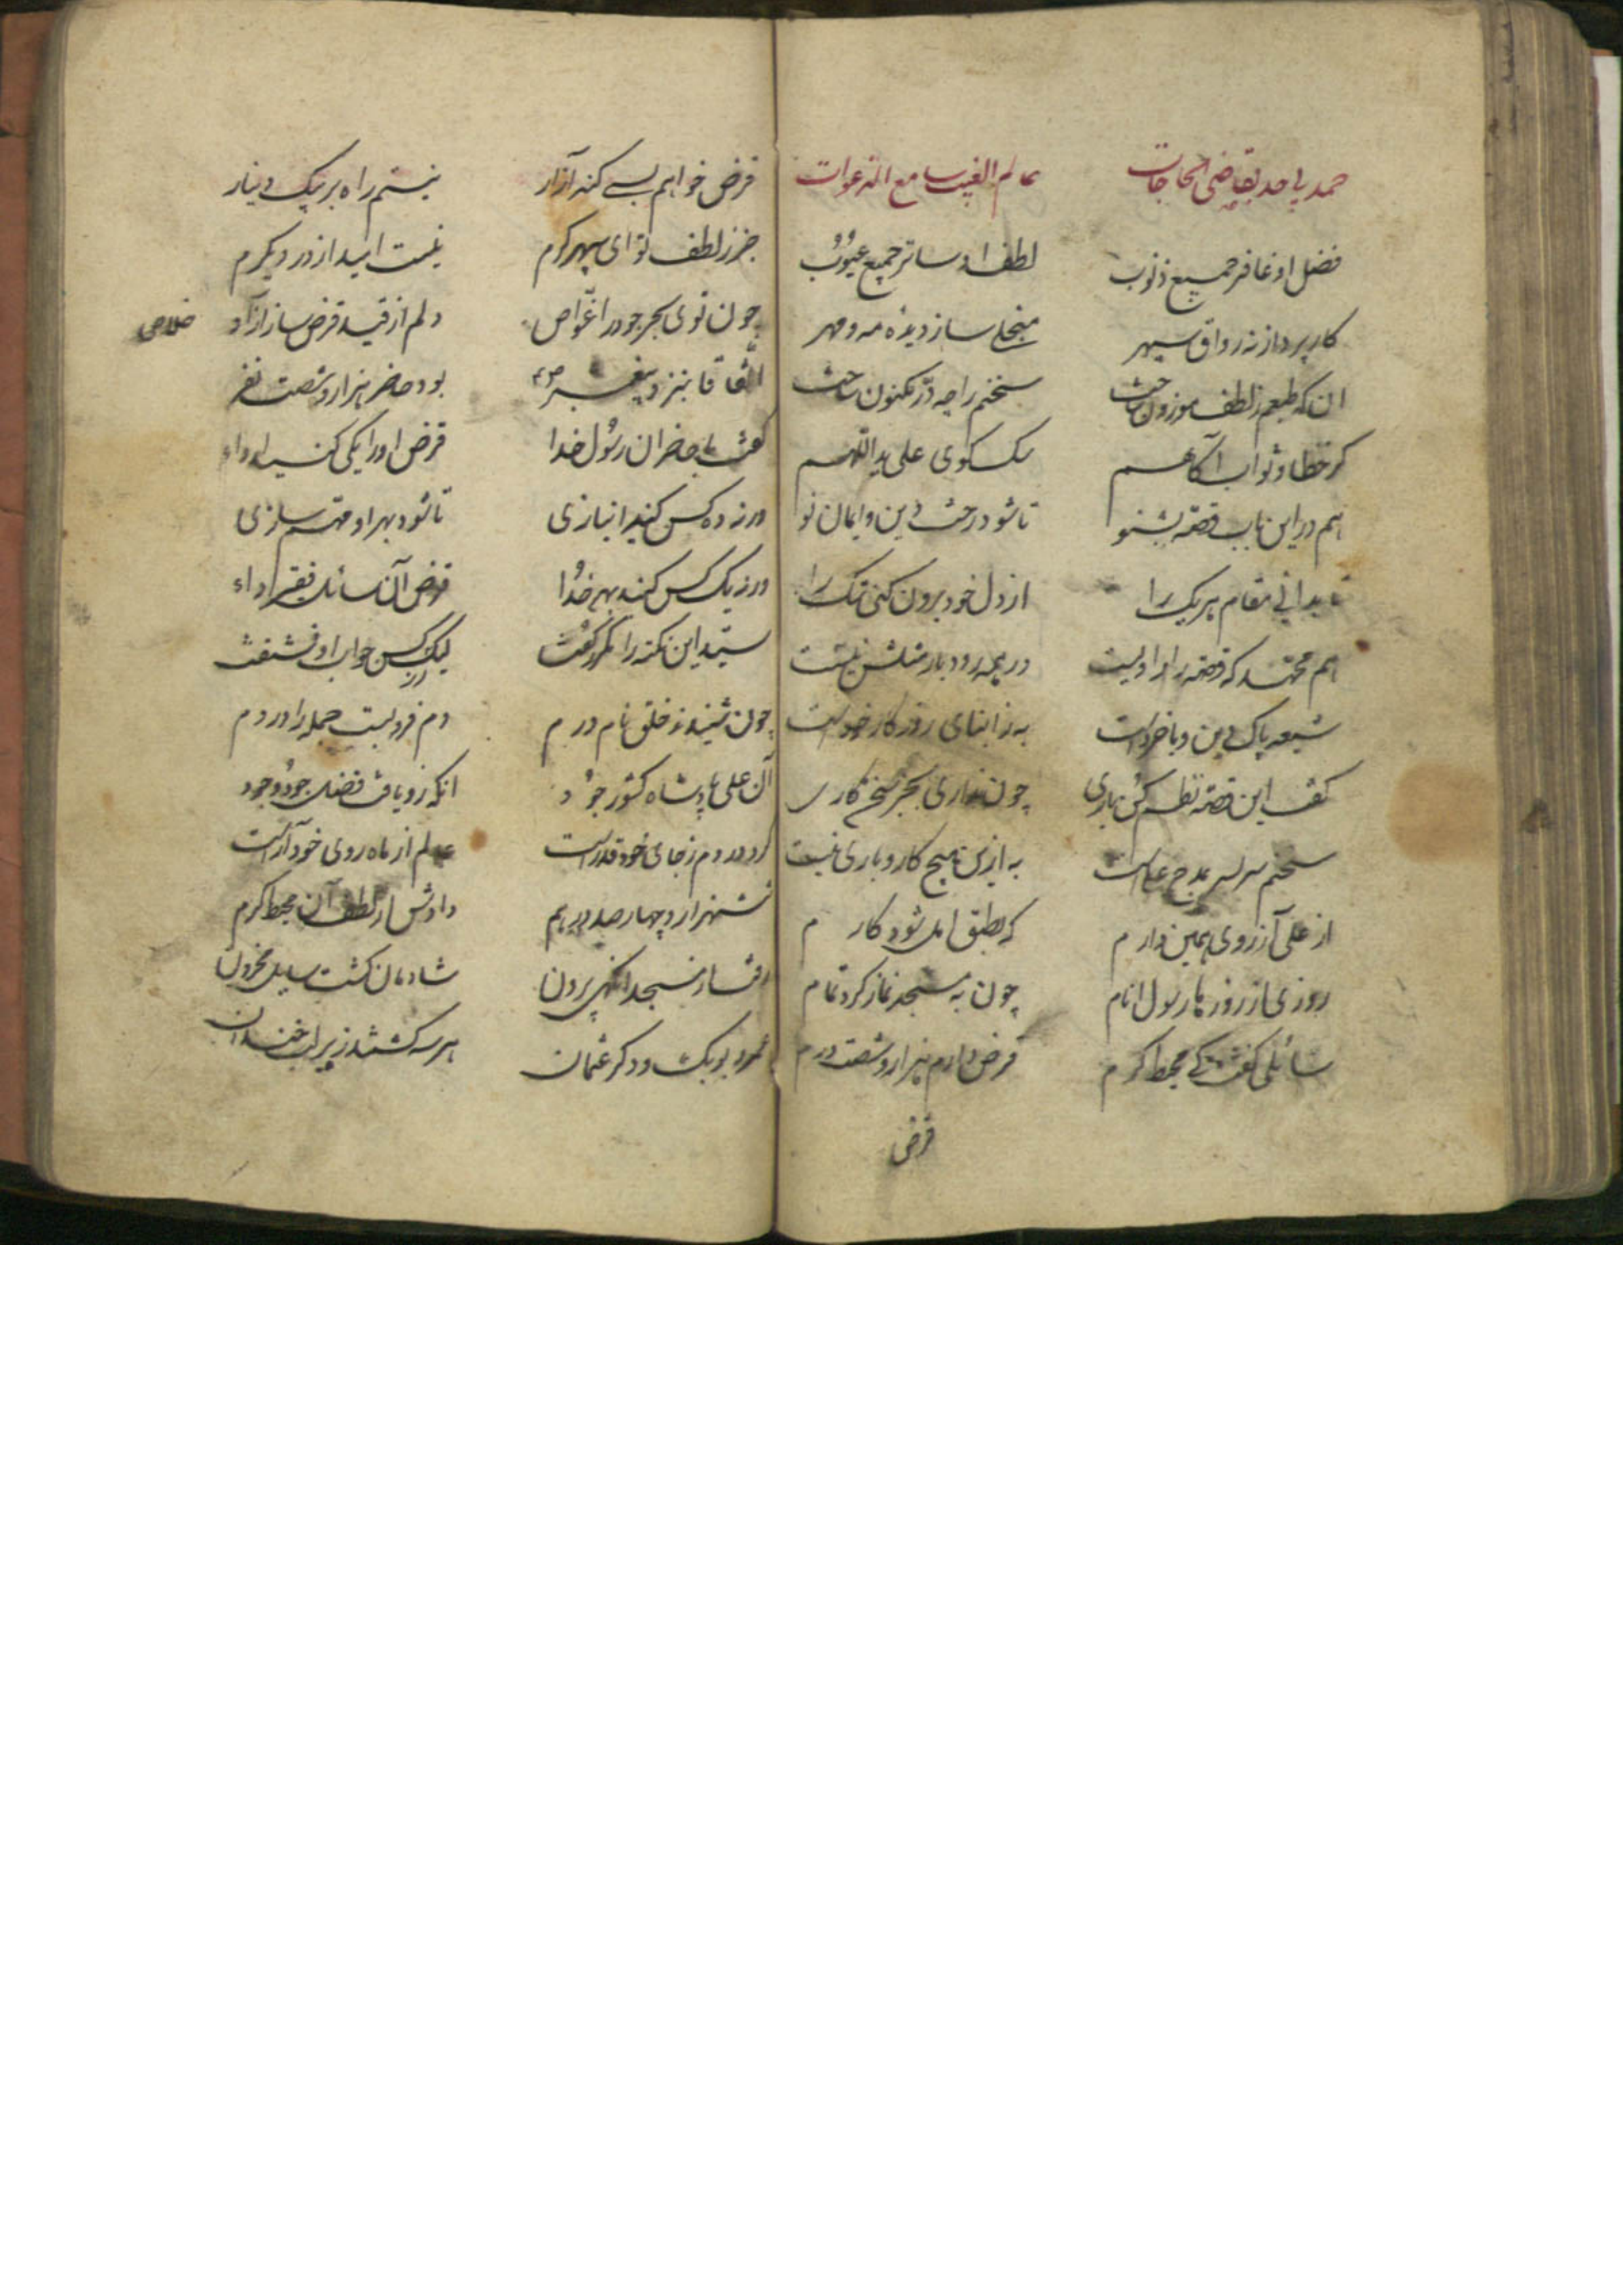 حمد بی حد بقاضی الحاجات عالم الغیب سامع الدعوات
فضل او غافر جمیع ذنوب لطف او ساتر جمیع عیوب
کار پرداز نه رواق سپهر منجلی ساز دیده مه و مهر
ان که طبعم ز لطف موزون ساخت سخنم را چه در مکنون ساخت
کر خطا و ثواب آکاهم سک کوی علی ید اللهم
هم در این باب قصه بشنو تا شود درست دین و ایمان تو
تا بدانی مقام هر یک را از دل خود برون کنی شک را
هم محمد که قصه را راویست در همه رودبار مثلش نیست
شیعه پاک دین و با خرد است به ز ابنای روزکار خود است
کفت این قصه نظم کن باری چون تو داری بحر سخن کاری
سخنم سر بسر بمدح علی است به ازین هیچ کار و باری نیست
از علی آرزوی همین دارم که بطبق امل شود کارم
روزی از روزها رسول انام چون به مسجد نماز کرد تمام
سائلی کفت کی محیط کرم قرض دارم هزار و شصت درم
قرض
قرض خواهم بسی کند آزار نیستم راه بر یک دینار
جز ز لطف تو ای سپهر کرم نیست امید از در دیکرم
چون توی بحر جود را غواص دلم از قید قرض ساز آزاد خلاص
اتفاقا بنزد پیغمبر ص بود حاضر هزار و شصت نفر
کفت با حاضران رسول خدا قرض او را یکی کنید ادا
ور نه ده کس کنید انبازی تا شود بهر او مهم سازی
ور نه یک کس کند بهر خدا قرض آن سائل فقیر اداء
سید این نکته را مکرر کفت لیک کس جواب او نشنفت
چون شنیدند خلق نام درم دم فرو بست جمله را در دم
آن علی پادشاه کشور جود انکه زو یافت فضل جود وجود
کرد در دم ز جای خود قد راست عالم از ماه روی خود آراست
شش هزار و چهار صد درهم دادش از لطف آن محیط کرم
رفت از مسجد نبی بیرون شادمان کشت سایل محزون
عمر و بوبکر و دکر عثمان هر سه کشتند زیر لب خندان